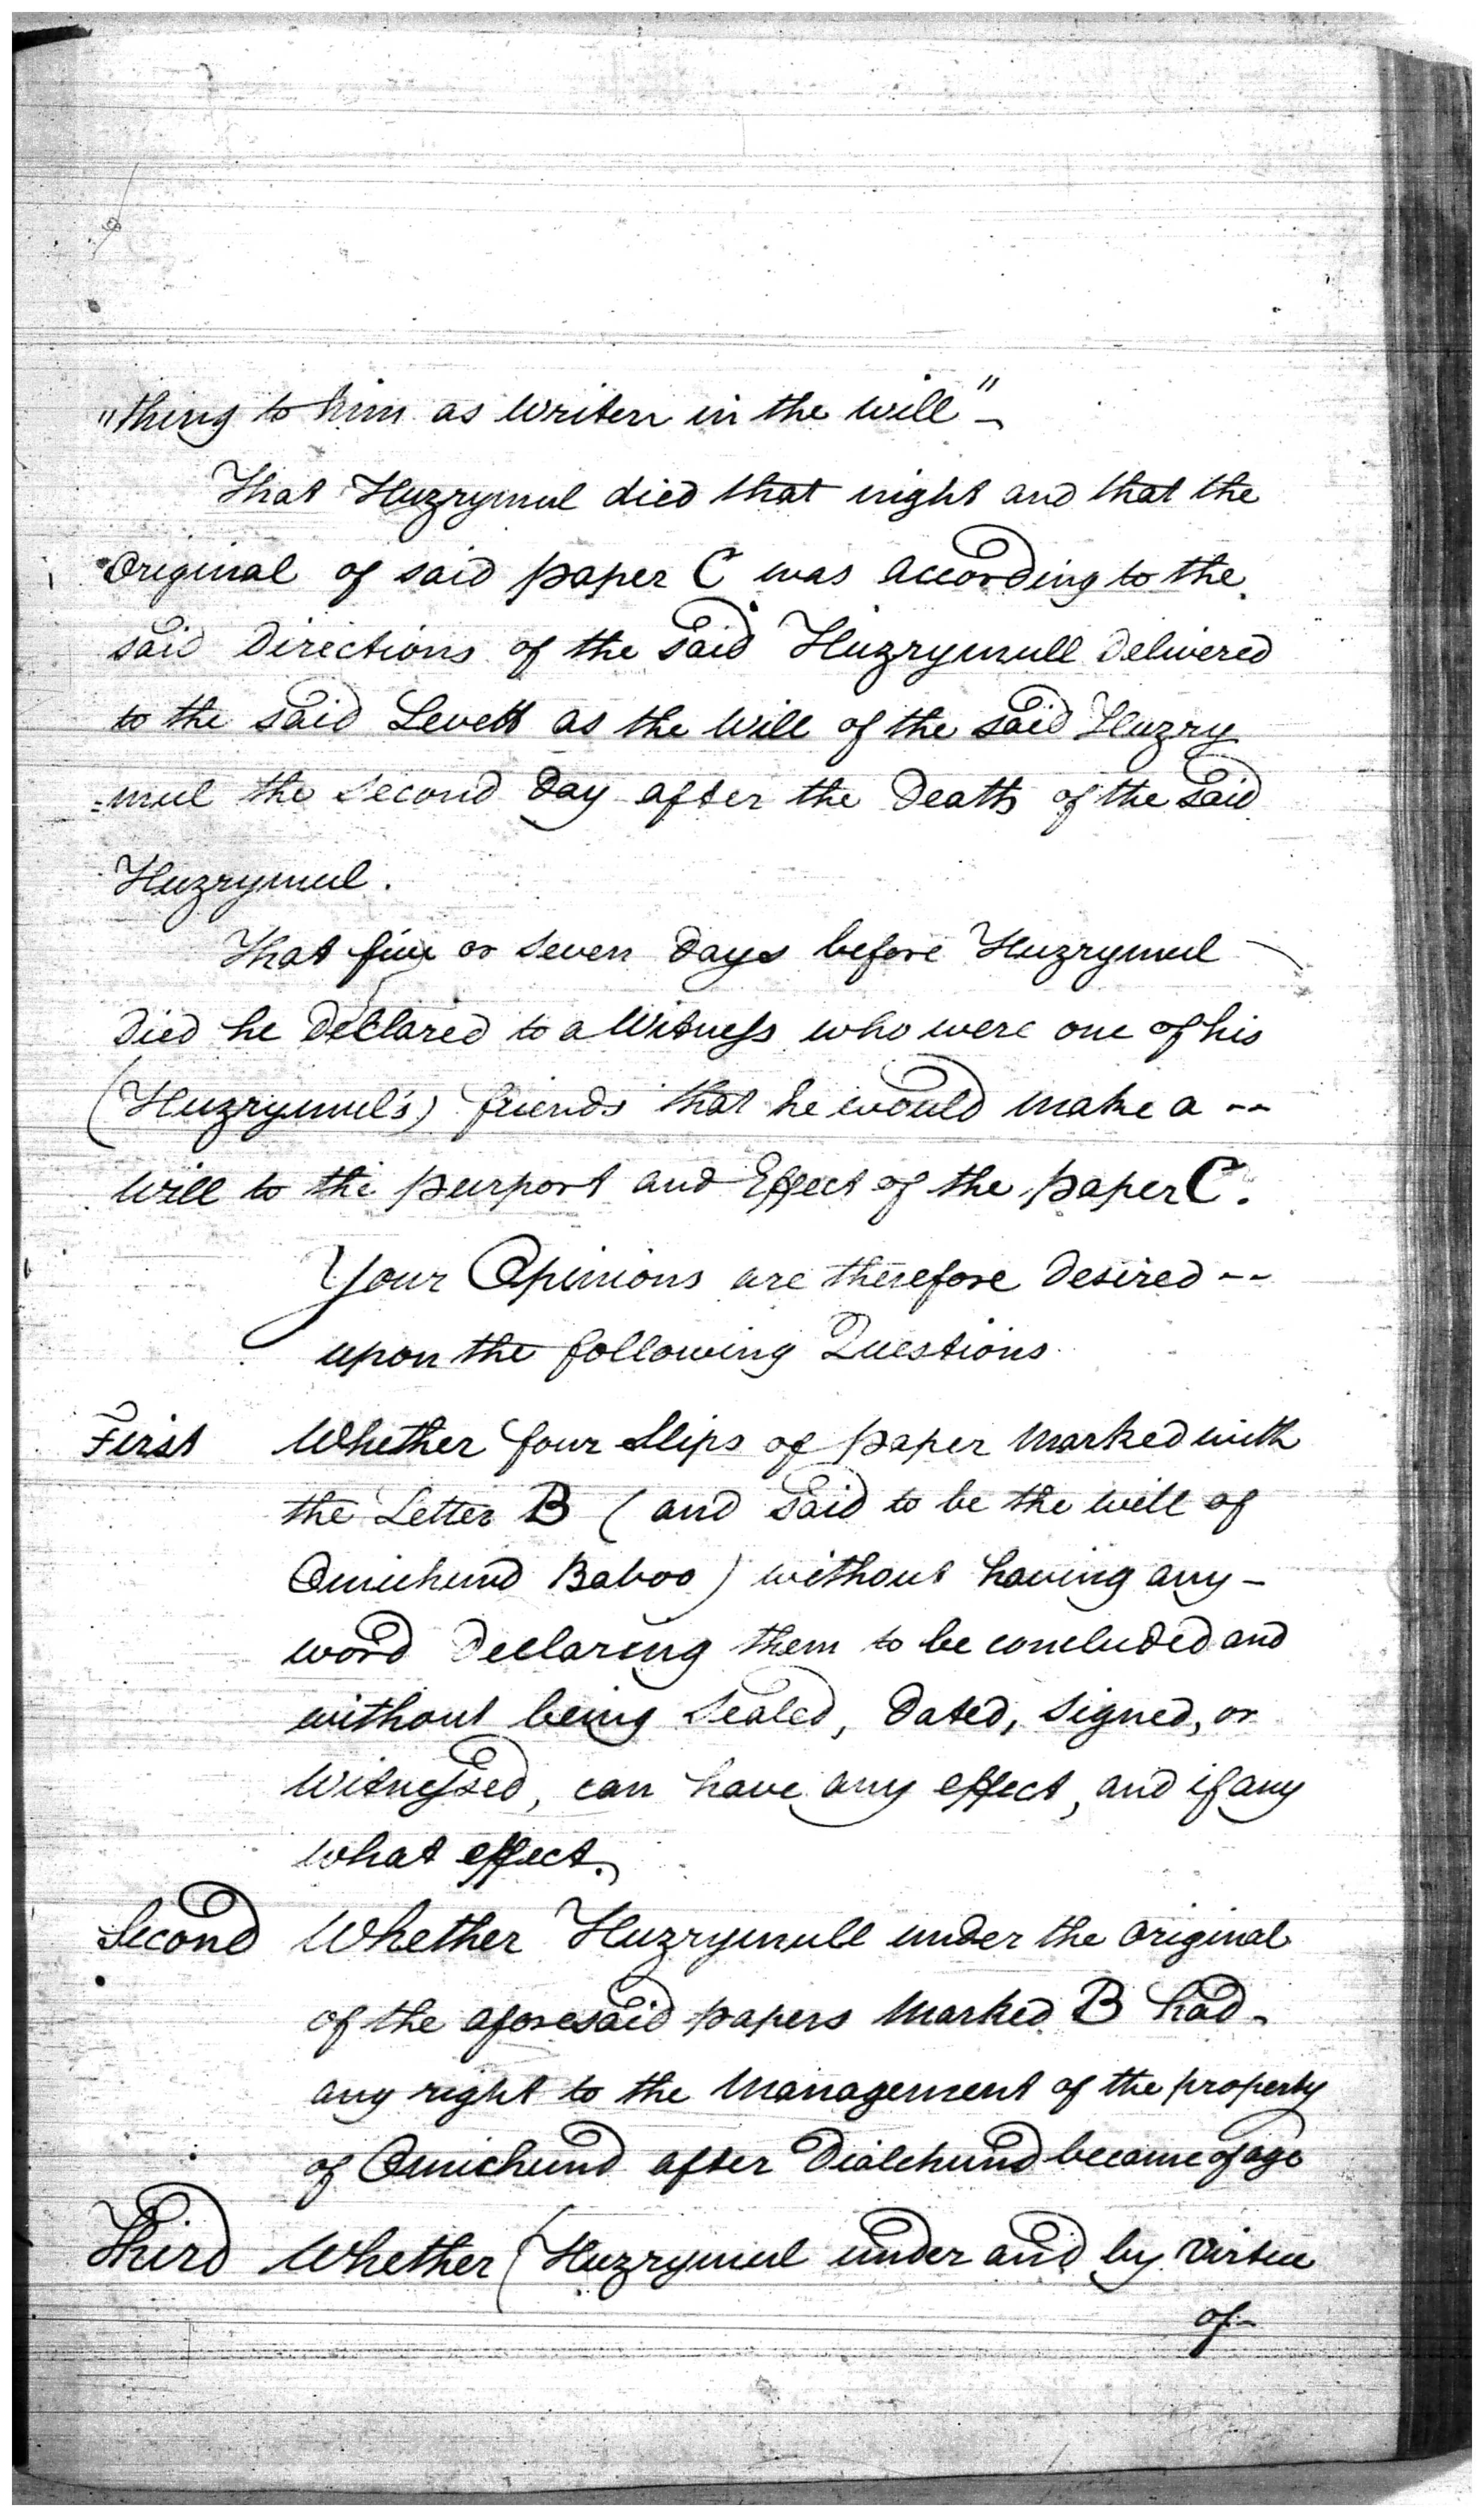 "thing to him as writen in the will"
That Huzrymul died that night and that the
Original of said paper C was according to the
said Directions of the said Huzrymull Delivered
to the said Levett as the Will of the said Huzry
=mul the second Day after the Death of the said
Huzrymul.
That five or seven Days before Huzrymul
Died he Declared to a Witness who were one of his
(Huzrymul's) friends that he would make a --
Will to the purport and Effect of the paper C.
Your Opinions are therefore Desired --
upon the following Questions
First Whether four Slips of paper Marked with
the Letter B (and said to be the will of
Omichund Baboo) without having any -
word Declaring them to be concluded and
without being Sealed, Dated, Signed, or
Witnessed, can have any effect, and if any
what effect.
Second Whether Huzrymull under the Original
of the aforesaid papers Marked B had -
any right to the Management of the property
of Omichund after Dialchund became of age
Third Whether (Huzrymul under and by Virtue
of -